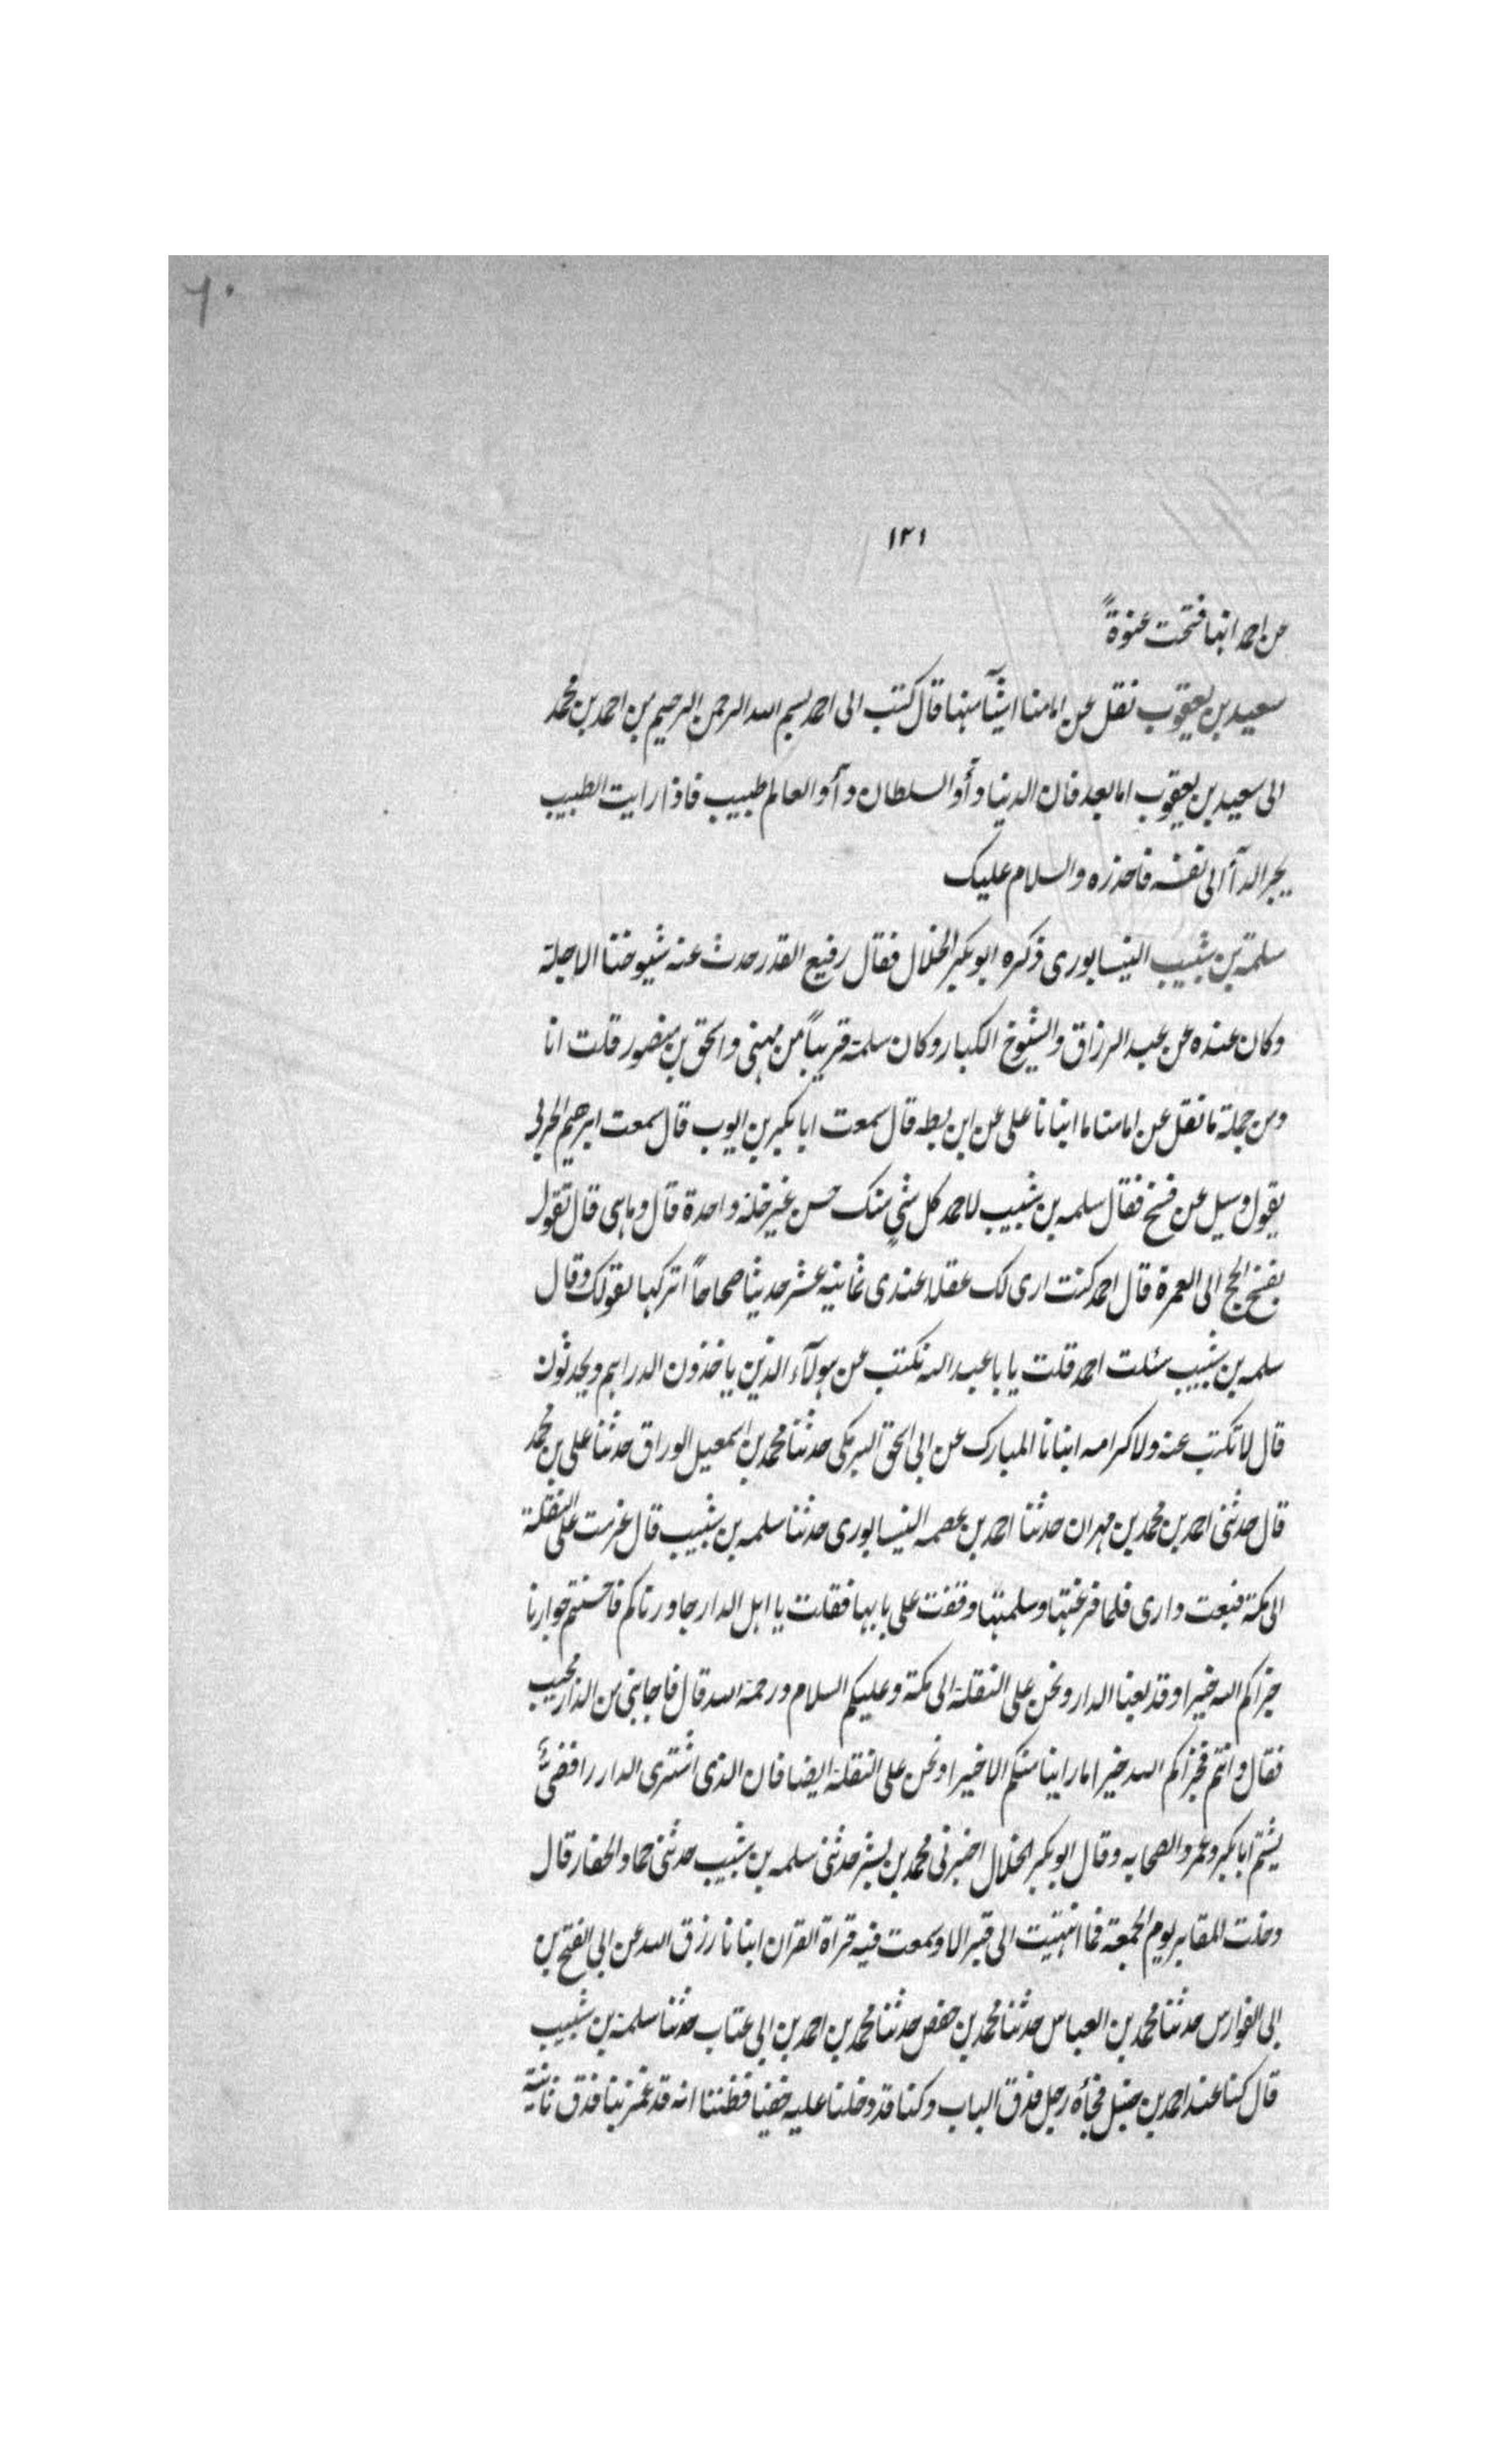 ٦٠
١٢١
عن احمد انها فتحت عنوةً
سعيد بن يعقوب نقل عن امامنا اشيآ منها قال كتب الى احمد بسم الله الرحمن الرحيم من احمد بن محمد
الى سعيد بن يعقوب اما بعد فان الدنيا دأو السلطان دآو العالم طبيب فاذا رايت الطبيب
يجر الدآ الى نفسه فاحذره والسلام عليك
سلمة بن شبيب النيسابورى ذكره ابو بكر الخلال فقال رفيع القدر حدث عنه شيوخنا الاجلة
وكان عنده عن عبد الرزاق والشيوخ الكبار وكان سلمة قريباً من مهنى واسحق بن منصور قلت انا
ومن جملة ما نقل عن امامنا ما انبانا على عن ابن بطه قال سمعت ابا بكر بن ايوب قال سمعت ابرهيم الحربى
يقول وسيل عن فسخ فقال سلمه بن شبيب لاحمد كل شئ منك حسن غير خلة واحدة قال وماهى قال تقول
بفسخ الحج الى العمرة قال احمد كنت ارى لك عقلا عندى ثمانيه عشر حديثا صحاحاً اتركها لقولك وقال
سلمه بن شبيب سئلت احمد قلت يا با عبد الله نكتب عن هولآء الذين ياخذون الدراهم ويحدثون
قال لا تكتب عنه ولا كرامه انبانا المبارك عن ابى اسحق البرمكى حدثنا محمد بن اسمعيل الوراق حدثنا على بن محمد
قال حدثنى احمد بن محمد بن مهران حدثنا احمد بن عصمه النيسابورى حدثنا سلمه بن شبيب قال عزمت على النقلة
الى مكة فبعت دارى فلما فرغتها وسلمتها وقفت على بابها فقلت يا اهل الدار جاورناكم فاحسنتم جوارنا
جزاكم الله خيرا وقد بعنا الدار ونحن على النقلة الى مكة وعليكم السلام ورحمة الله قال فاجابنى من الدار مجيب
فقال وانتم فجزاكم الله خيرا ما راينا منكم الا خيرا ونحن على النقلة ايضا فان الذى اشترى الدار رافضىٌّ
يشتم ابا بكر وعمر والصحابه وقال ابو بكر الخلال اخبرنى محمد بن بشر حدثنى سلمه بن شبيب حدثنى حماد الحفار قال
دخلت المقابر يوم الجمعة فما انتهيت الى قبر الا وسمعت فيه قراة القران انبانا رزق الله عن ابى الفتح بن
ابى الفوارس حدثنا محمد بن العباس حدثنا محمد بن حفص حدثنا محمد بن احمد بن ابى عتاب حدثنا سلمة بن شبيب
قال كنا عند احمد بن حنبل فجأه رجل فدق الباب وكنا قد دخلنا عليه خفيا فظننا انه قد غمز بنا فدق ثانية